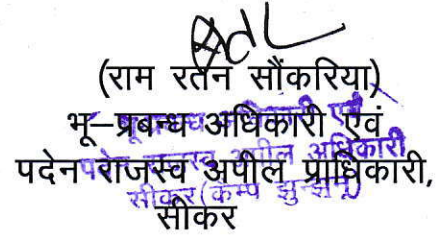 (राम रतन सौंकरिया)
भू–प्रबन्ध अधिकारी एवं
पदेन राजस्व अपील प्राधिकारी,
सीकर
भू-प्रबन्ध अधिकारी एवं
पदेन राजस्व अपील अधिकारी
सीकर (कैम्प झुन्झुनू)